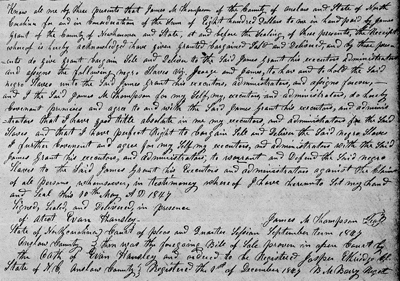 Know all men by these presents that James M Thompson of the County of Onslow and State of North
Carolina for and in Consideration of the Sum of Eight hundred Dollars to me in hand paid by James
Grant of the County of and State, at and before the Sealing of these presents, the Receipt
whereof is hereby acknowledged have given granted bargained Sold and Delivered, and by these presents
do give grant bargain Sell and Deliver to the Said James Grant his executors administrators
and assigns the following negro Slaves viz, George and James, to have and to hold the Said
negro Slaves unto the Said James Grant his executors, administrators, and assigns forever,
And I the Said James M Thompson for my Self, my executors and administrators, do hereby
Covenant promises and agree to and with the Said James Grant his executors, and adminis
trators that I have good title absolute in me my executors and administrators for the Said
Slaves and that I have perfect Right to bargain Sell and Deliver the Said negro Slaves
I further Covenant and agree for my Self my executors, and administrators with the Said
James Grant his executors, and administrators, to warrant and Defend the Said negro
Slaves to the Said James Grant his Executors and administrators against the Claims
of all Persons, whomsoever, in testimony whereof I have hereunto Set my hand
and Seal this 10th May A D 1847
Signed, Sealed, and Delivered, in presence
of attest Evan Hansley James M Thompson
State of No Carolina Court of pleas and Quarter Sessions September term 1847
Onslow County Then was the foregoing Bill of Sale proven in open Court by
the Oath of Evan Hansley and ordered to be Registered Jasper Etheridge
State of N C, Onslow County Registered the of December 1847